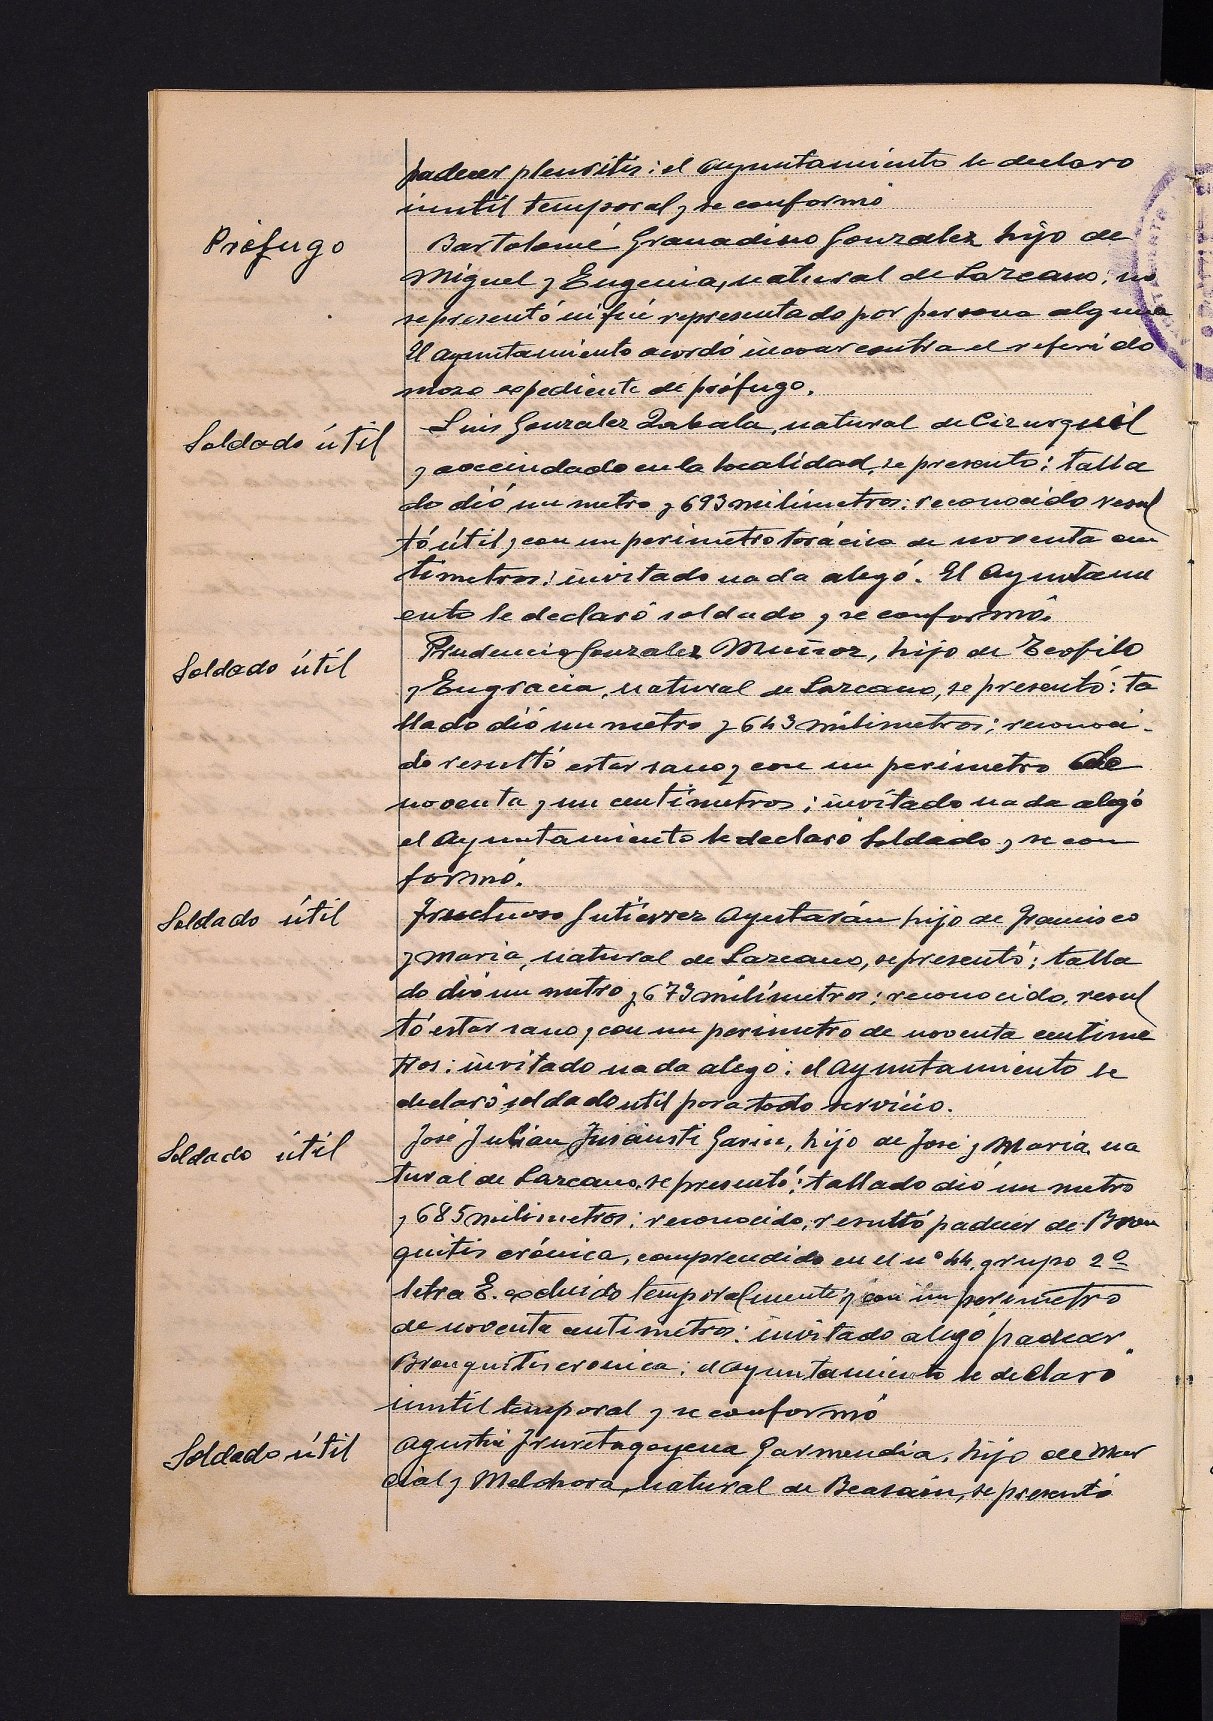 padecer pleuritis: el Ayuntamiento le declaro
inutil temporal y se conformó
Prófugo
Bartolomé Granadino Gonzalez hijo de
Miguel y Eugenia, natural de Lazcano; no
se presentó ni fué representado por persona alguna
El Ayuntamiento acordó incoar contra el referido
mozo expediente de prófugo.
Soldado útil
Luis Gonzalez Zabala, natural de Cizurquil
y avecindado en la localidad, se presento; talla
do dió un metro y 693 milimetros: reconocido resul
tó útil y con un perimetro torácico de noventa cen
timetros: invitado nada alegó. El Ayuntami
ento le declaró soldado y se conformó.
Soldado útil
Prudencio Gonzalez Muñoz, hijo de Teofilo
y Engracia, natural de Lazcano, se presentó: ta
llado dió un metro y 643 milimetros; reconoci-
do resultó estar sano y con un perimetro de
noventa y un centímetros; invitado nada alegó
el Ayuntamiento le declaró Soldado y se con
formó.
Soldado útil
Fructuoso Gutiérrez Ayestarán hijo de Francisco
y Maria, natural de Lazcano, se presentó; talla
do dió un metro y 673 milímetros; reconocido, resul
tó estar sano y con un perimetro de noventa centime
tros: invitado nada alego: el Ayuntamiento le
declaró soldado util para todo servicio.
Soldado útil
José Julian Insausti Garin, hijo de José y Maria, na
tural de Lazcano, se presentó; tallado dió un metro
y 685 milimetros; reconocido, resultó padecer de Bron
quitis crónica, comprendido en el nº 44, grupo 2º
letra E. excluido temporalmente y con un perimetro
de noventa centimetros: invitado alegó padecer
Bronquitis cronica; el Ayuntamiento le declaró
inutil temporal y se conformó
Soldado útil
Agustin Iruretagoyena Garmendia, hijo de Mar
cial y Melchora, natural de Beasain, se presentó